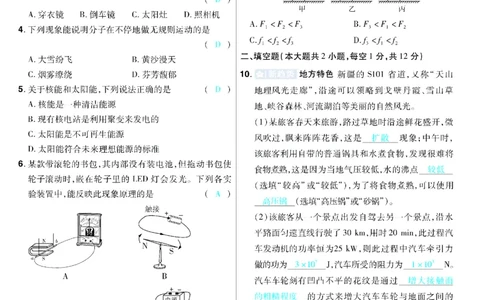 A. 穿衣镜 B. 倒车镜 C. 太阳灶 D. 照相机
4. 下列现象能说明分子在不停地做无规则运动的是
( D )
A. 大雪纷飞 B. 黄沙漫天
C. 烟雾缭绕 D. 芬芳馥郁
5. 关于核能和太阳能,下列说法正确的是 ( D )
A. 核能是一种清洁能源
B. 现有核电站是利用聚变来发电的
C. 太阳能是不可再生能源
D. 太阳能符合未来理想能源的标准
6. 某款带滚轮的书包,其内部没有装电池,但拖动书包使
轮子滚动时,嵌在轮子里的 LED 灯会发光。下列各实
验装置中,能反映此现象原理的是 ( A )
触接
N
S
A
B
甲 乙 丙
A. F₁<F₂<F₃ B. F₃<F₁<F₂
C. f₁<f₂<f₃ D. f₃<f₁<f₂
二、填空题(本大题共 2 小题,每空 1 分,共 12 分)
10. 地方特色 新疆的 S101 省道,又称“天山
地理风光走廊”,沿途可以领略到戈壁丹霞、雪山草
地、峡谷森林、河流湖泊等美丽的自然风光。
(1)某旅客春天来旅游,路过草地时沿途鲜花盛开,微
风吹过,飘来阵阵花香,这是 扩散 现象;中午时,
该旅客利用自带的普通锅具和水煮食物,发现很难将
食物煮熟,这是因为当地气压较低,水的沸点 较低
(选填“较高”或“较低”),为了将食物煮熟,可以使用
高压锅 (选填“高压锅”或“砂锅”)。
(2)该旅客从一个景点出发自驾去另一个景点,沿水
平路面匀速直线行驶了 30 km,用时 20 min,此过程汽
车发动机的功率恒为 25 kW,则此过程中汽车牵引力
做的功为 3×10⁷ J,汽车所受的阻力为 1×10³ N。
汽车轮胎刻有凹凸不平的花纹是通过 增大接触面
的粗糙程度 的方式来增大汽车车轮与地面之间的